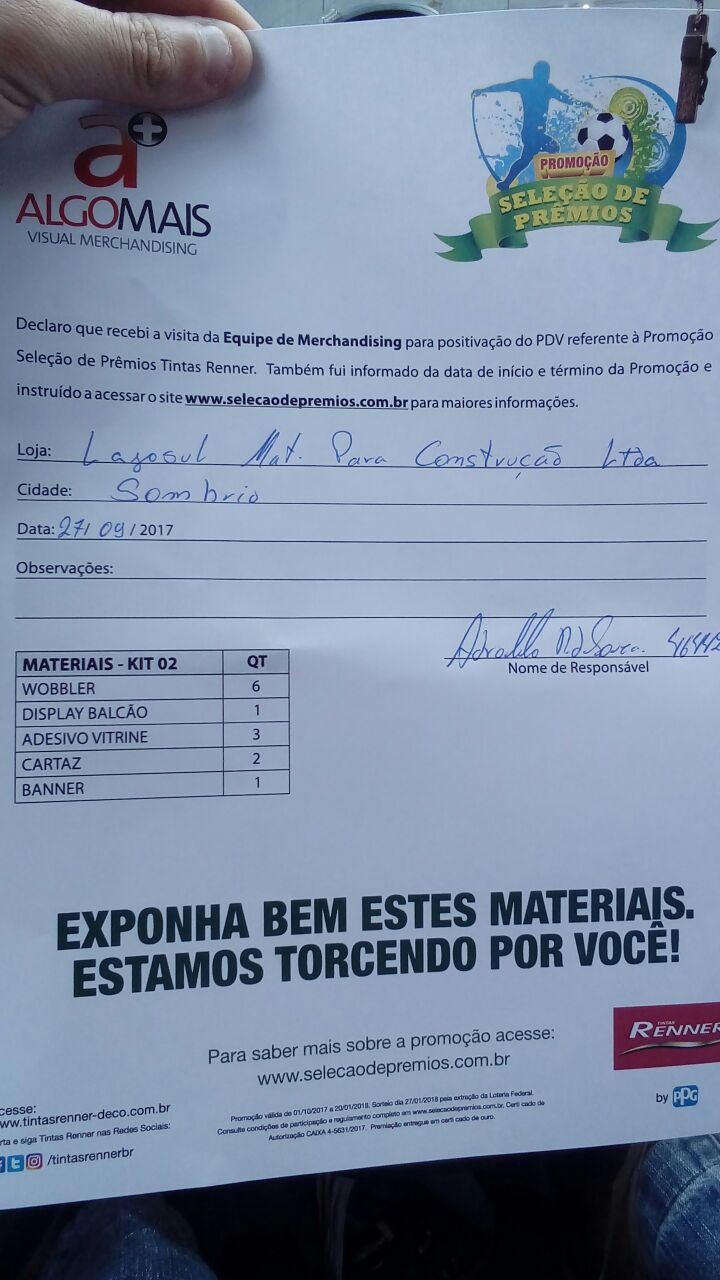 a+
ALGOMAIS
VISUAL MERCHANDISING
PROMOÇÃO
SELEÇÃO DE
PRÊMIOS
Declaro que recebi a visita da Equipe de Merchandising para positivação do PDV referente à Promoção
Seleção de Prêmios Tintas Renner. Também fui informado da data de início e término da Promoção e
instruído a acessar o site www.selecaodepremios.com.br para maiores informações.
Loja: Lagosul Mat. Para Construção Ltda
Cidade: Sombrio
Data: 27/09/2017
Observações:
Nome de Responsável
MATERIAIS - KIT 02 QT
WOBBLER 6
DISPLAY BALCÃO 1
ADESIVO VITRINE 3
CARTAZ 2
BANNER 1
EXPONHA BEM ESTES MATERIAIS.
ESTAMOS TORCENDO POR VOCÊ!
Para saber mais sobre a promoção acesse:
www.selecaodepremios.com.br
TINTAS
RENNER
by PPG
cesse:
ww.tintasrenner-deco.com.br
rta e siga Tintas Renner nas Redes Sociais:
/tintasrennerbr
Promoção válida de 01/10/2017 a 20/01/2018. Sorteio dia 27/01/2018 pela extração da Loteria Federal.
Consulte condições de participação e regulamento completo em www.selecaodepremios.com.br. Certi cado de
Autorização CAIXA 4-5631/2017. Premiação entregue em certi cado de ouro.